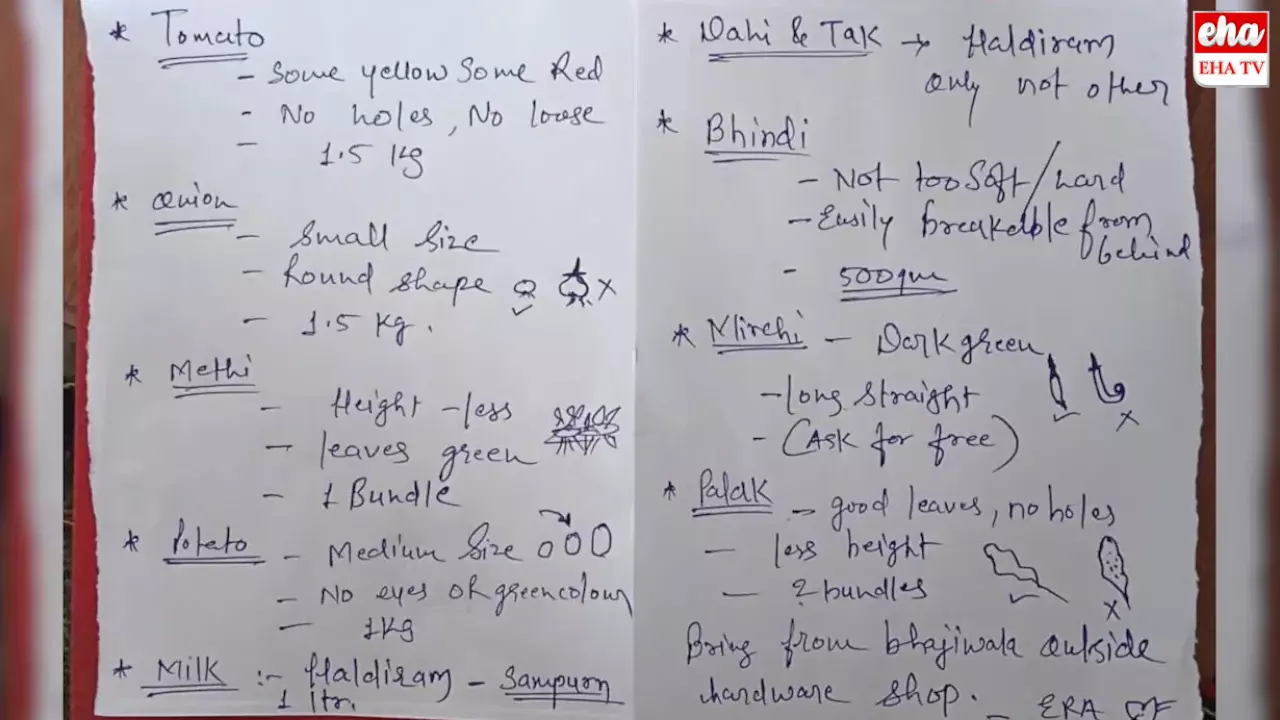 * Tomato
- Some yellow Some Red
- No holes, No loose
- 1.5 Kg
* onion
- Small Size
- Round shape
- 1.5 Kg.
* Methi
- Height - less
- leaves green
- 1 Bundle
* Potato - Medium Size
- No eyes or green colour
- 1Kg
* Milk :- Haldiram - Sampurn
1 ltr.
* Dahi & Tak → Haldiram
only not other
* Bhindi
- Not too Soft/hard
- Easily breakable from
behind
- 500gm
* Mirchi - Dark green
- long straight
- (Ask for free)
* Palak - good leaves, no holes
- less height
- 2 bundles
Bring from bhajiwala outside
hardware shop. - ERA OF
eha
EHA TV